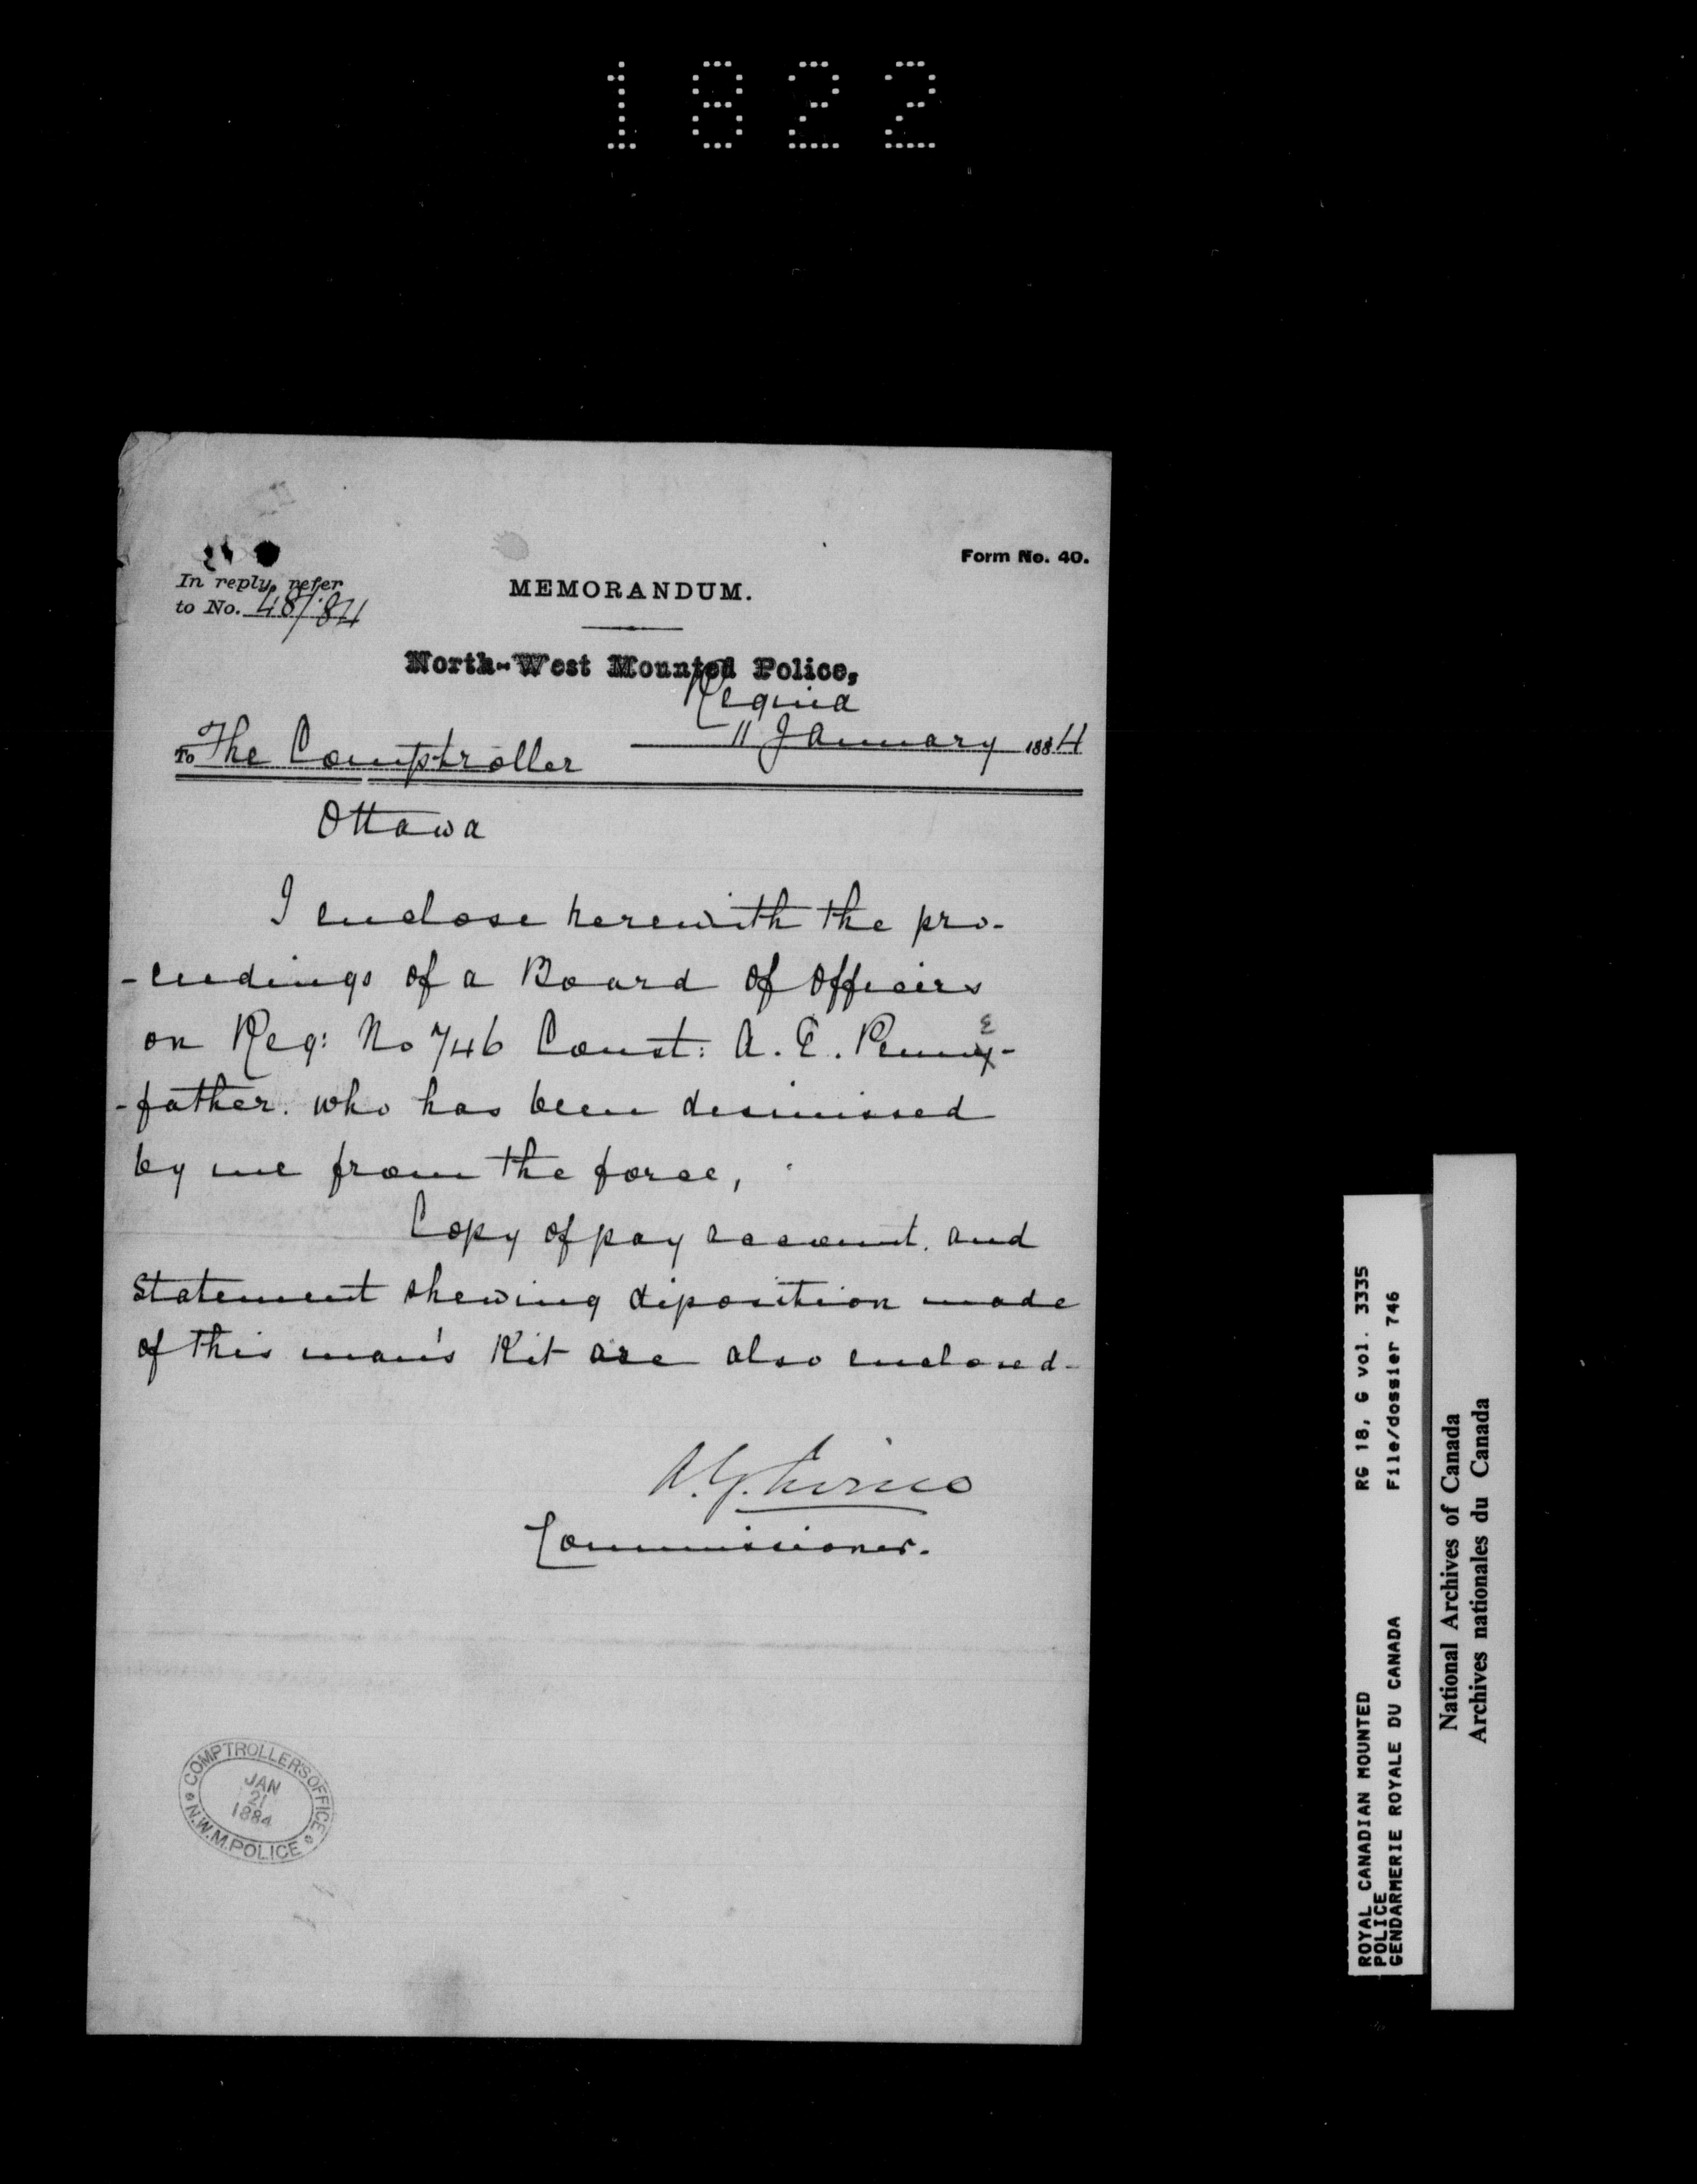 1822
Form No. 40.
In reply, refer
to No. 48/84
MEMORANDUM.
North-West Mounted Police,
Regina
11 January 1884
To The Comptroller
Ottawa
I enclose herewith the pro-
-ceedings of a Board of Officers
on Reg: No 746 Const: A. E. Penny-
e
-father. who has been dismissed
by me from the force,
Copy of pay account. and
Statement shewing disposition made
of this man's Kit are also enclosed-
A.G. Irvine
Commissioner.
COMPTROLLER'S OFFICE
JAN
21
1884
N.W.M. POLICE
ROYAL CANADIAN MOUNTED RG 18, G vol. 3335
POLICE
GENDARMERIE ROYALE DU CANADA File/dossier 746
National Archives of Canada
Archives nationales du Canada